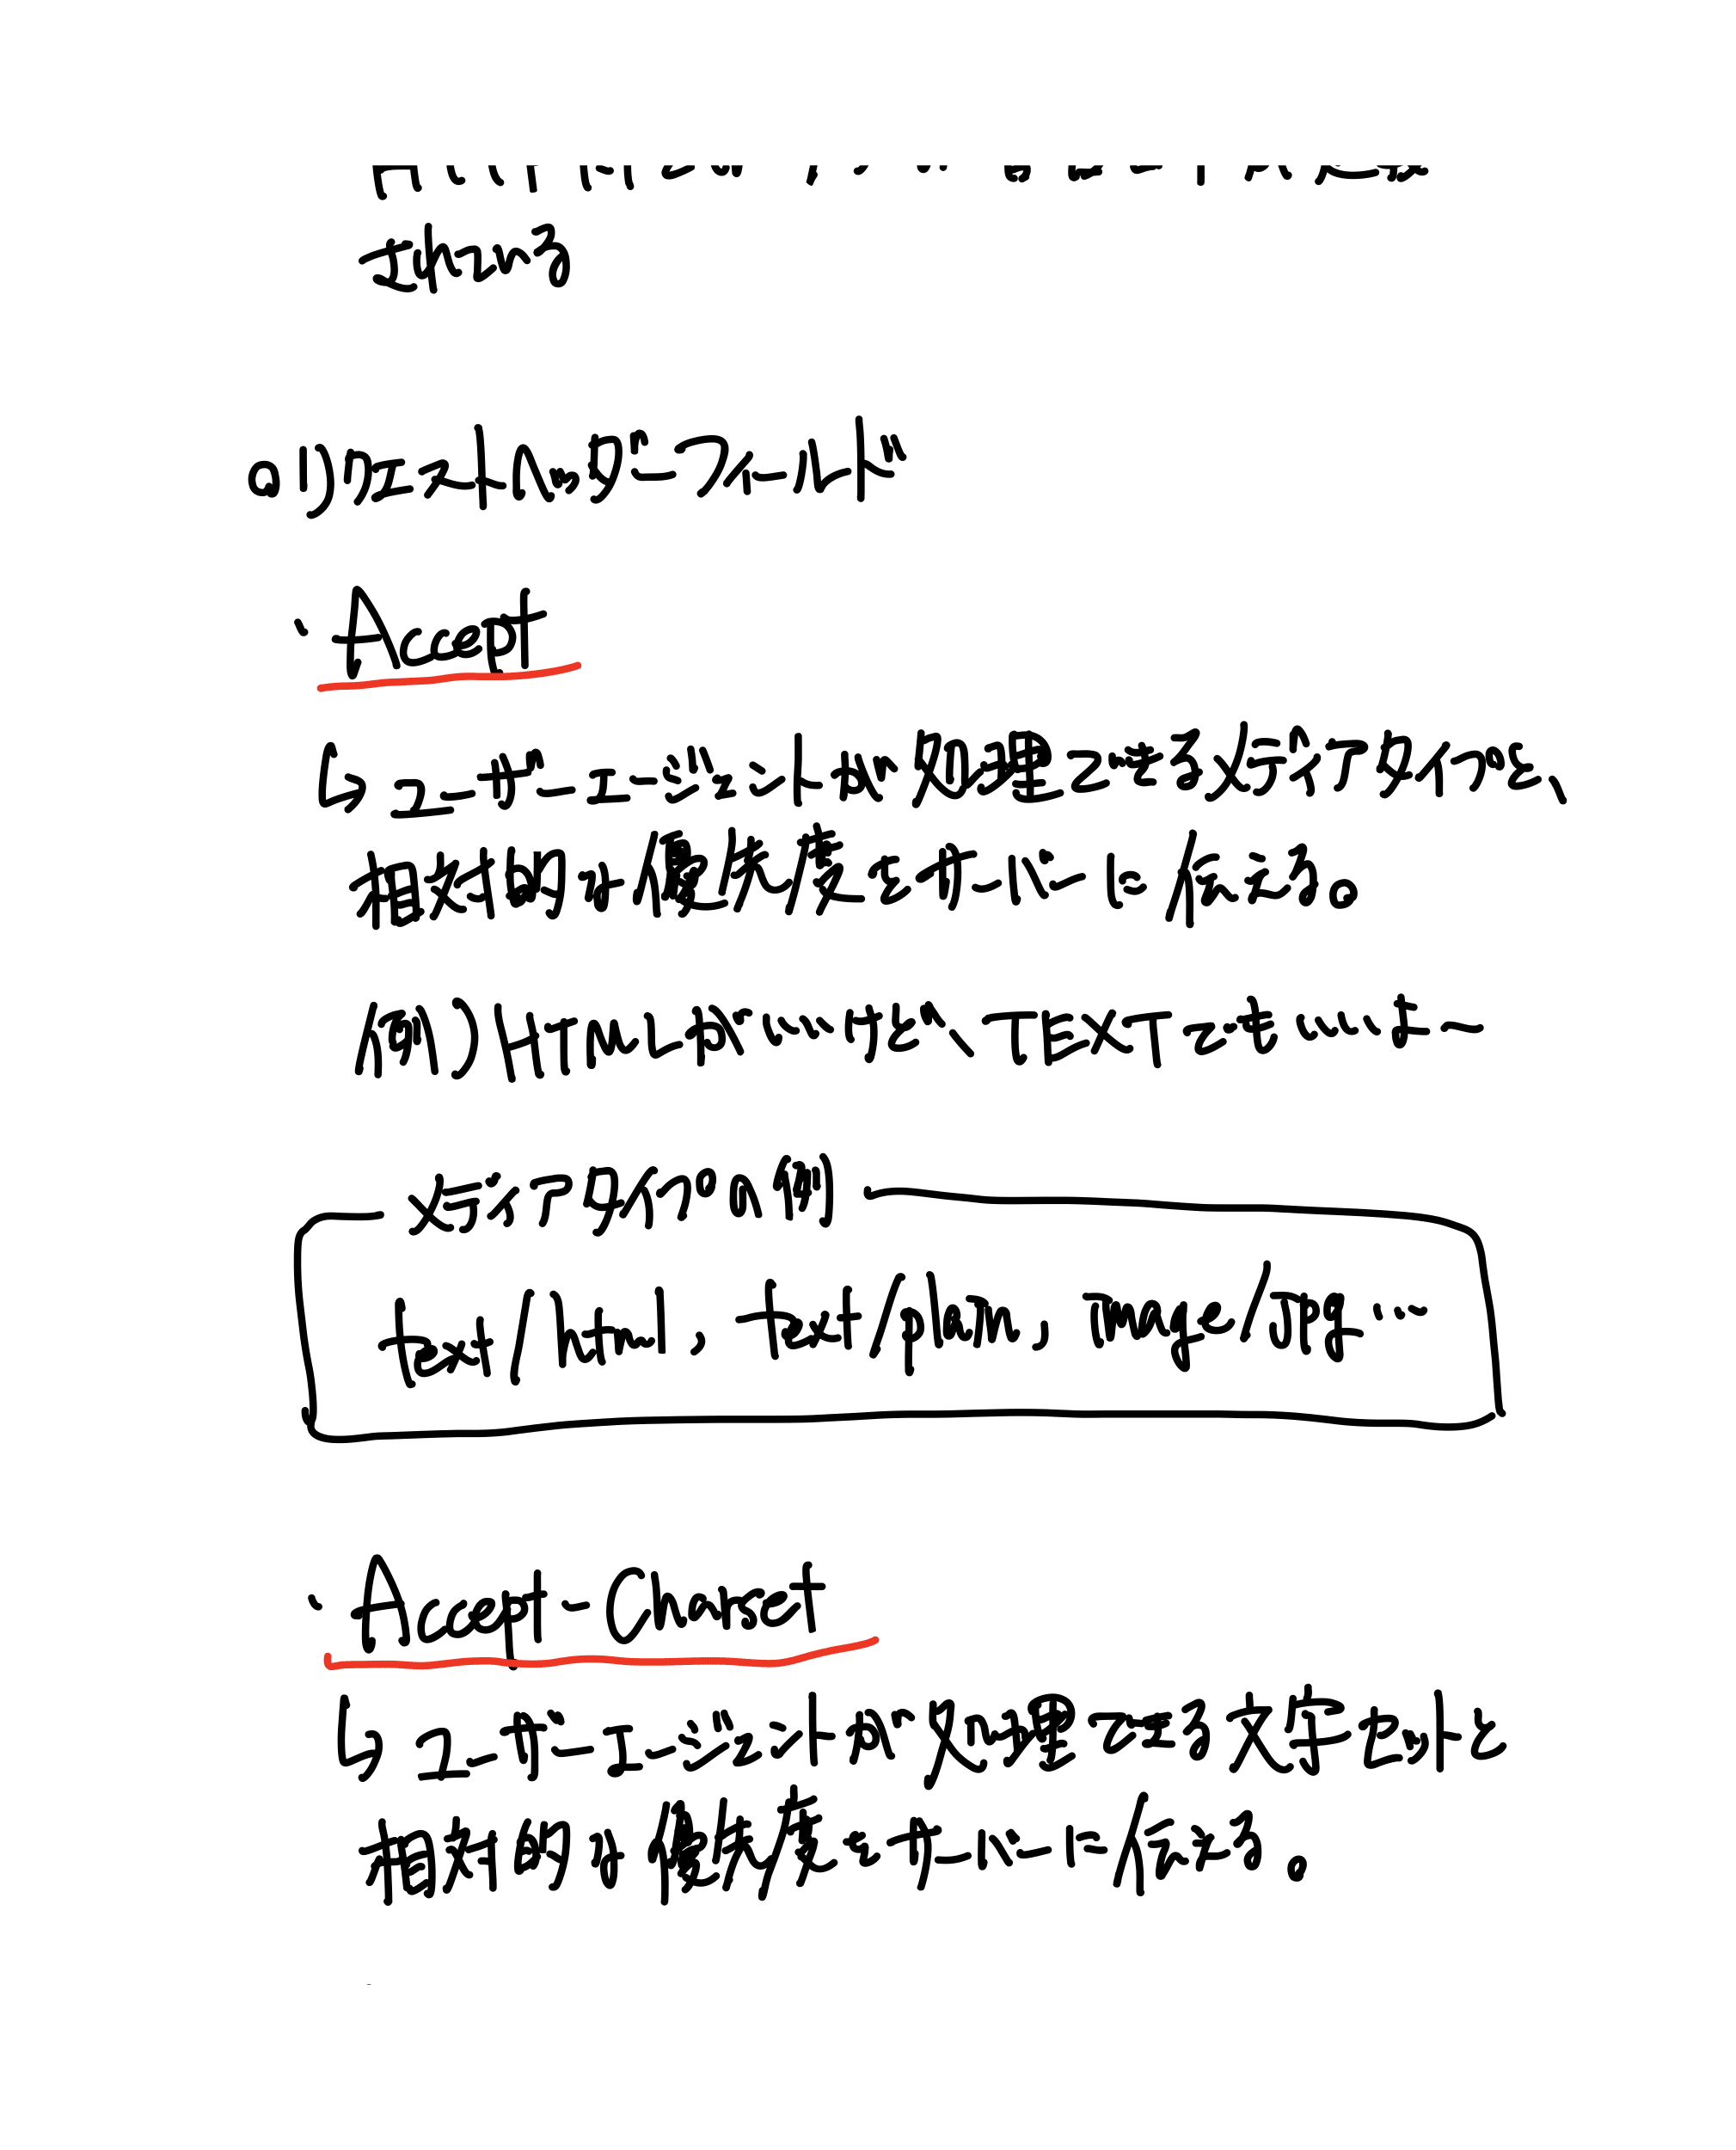 まれている
a)リクエストヘッダーフィールド
・Accept
↳ユーザーエージェントが処理できるメディアタイプと、
相対的な優先度をサーバーに伝える。
(例)HTMLがいいけど、TEXTでもいいよー
メディアタイプの例
text/html, text/plain, image/jpg…
・Accept-Charset
↳ユーザーエージェントが処理できる文字セットと
相対的な優先度をサーバーに伝える。